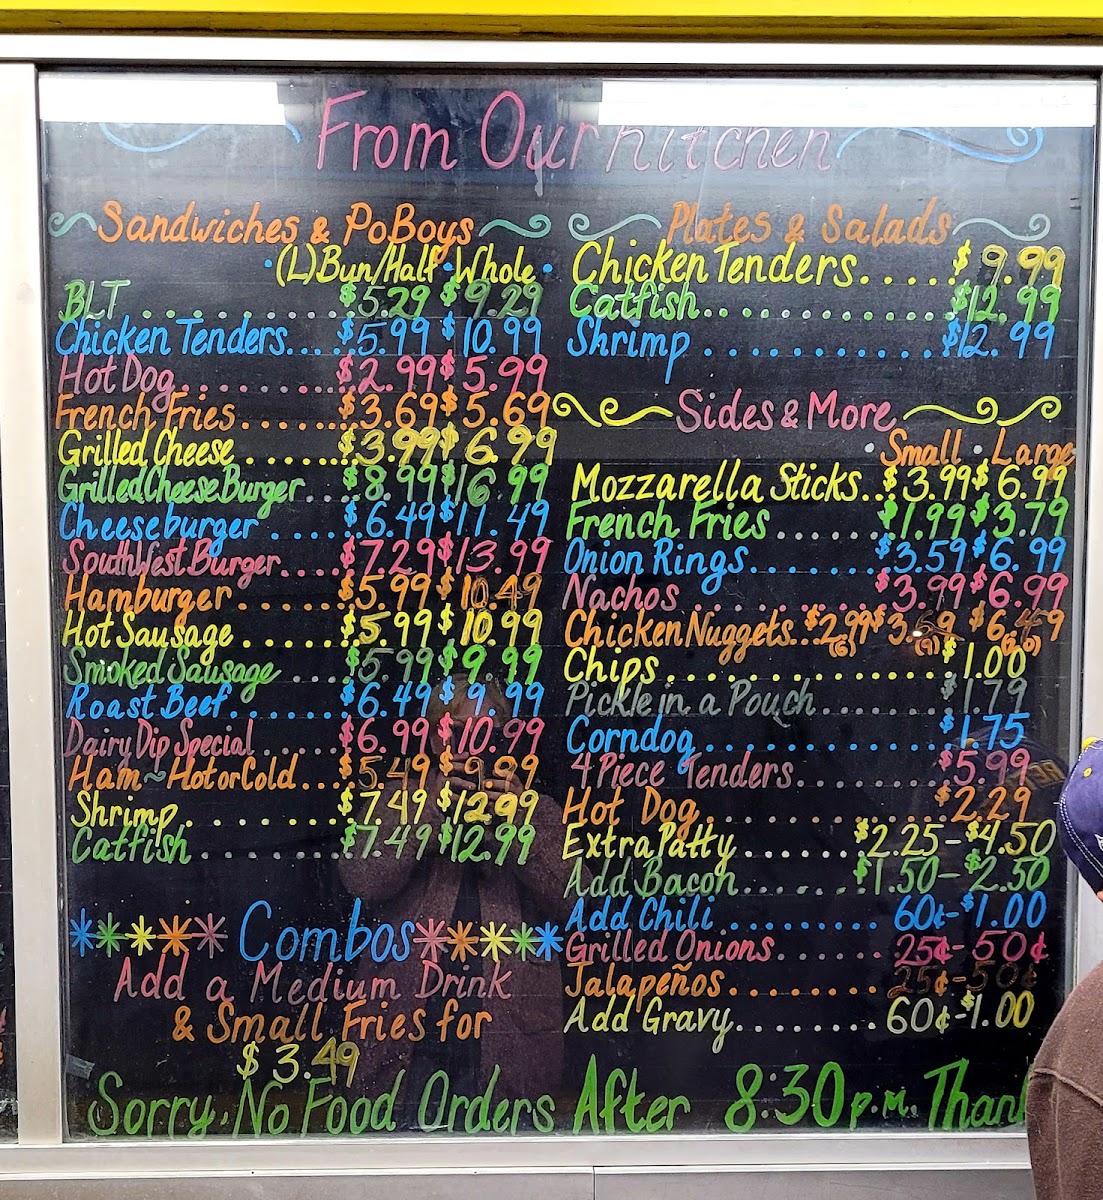 From Our Kitchen
Sandwiches & PoBoys
(L) Bun/Half · Whole ·
BLT . . . . . . . . . $5.29 $9.29
Chicken Tenders.... $5.99 $10.99
Hot Dog......... $2.99 $5.99
French Fries....... $3.69 $5.69
Grilled Cheese ....... $3.99 $6.99
Grilled Cheese Burger... $8.99 $16.99
Cheeseburger ..... $6.49 $11.49
SouthWest Burger.... $7.29 $13.99
Hamburger...... $5.99 $10.49
Hot Sausage ...... $5.99 $10.99
Smoked Sausage ... $5.99 $9.99
Roast Beef...... $6.49 $9.99
Dairy Dip Special ..... $6.99 $10.99
Ham~Hot or Cold... $5.49 $9.99
Shrimp........ $7.49 $12.99
Catfish ........ $7.49 $12.99
Combos
Add a Medium Drink
& Small Fries for
$3.49
Plates & Salads
Chicken Tenders..... $9.99
Catfish........... $12.99
Shrimp .......... $12.99
Sides & More
· Small · Large
Mozzarella Sticks.. $3.99 $6.99
French Fries ...... $1.99 $3.79
Onion Rings....... $3.59 $6.99
Nachos ......... $3.99 $6.99
Chicken Nuggets.. $2.99 (6) $3.69 (9) $6.49 (20)
Chips ............. $1.00
Pickle in a Pouch ...... $1.79
Corndog........... $1.75
4 Piece Tenders....... $5.99
Hot Dog........... $2.29
Extra Patty...... $2.25-$4.50
Add Bacon...... $1.50-$2.50
Add Chili ........ 60¢-$1.00
Grilled Onions...... 25¢-50¢
Jalapeños........ 25¢-50¢
Add Gravy....... 60¢-$1.00
Sorry, No Food Orders After 8:30 p.m. Than